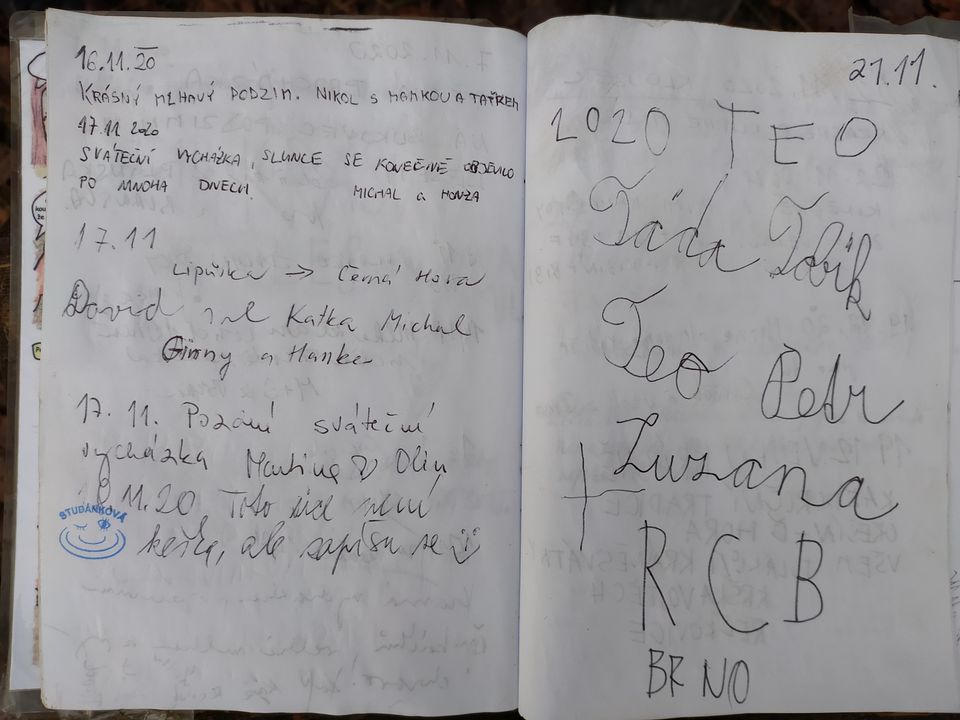 16.11.20
KRÁSNÝ MLHAVÝ PODZIM. NIKOL S MAMKOU A TAŤKEM
17.11 2020
SVÁTEČNÍ VYCHÁZKA, SLUNCE SE KONEČNĚ OBJEVILO
PO MNOHA DNECH. MICHAL a HONZA
17.11
Lipůvka → Černá Hora
David Katka Michal
Ginny a Hanka
17. 11. Pozdní sváteční
vycházka Martina Olin
18.11.20 Toto sice není
keška, ale zapíšu se
STUDÁNKOVÁ
21.11.
2020 TEO
Táda Tobík
Teo Petr
+ Zuzana
RCB
BRNO